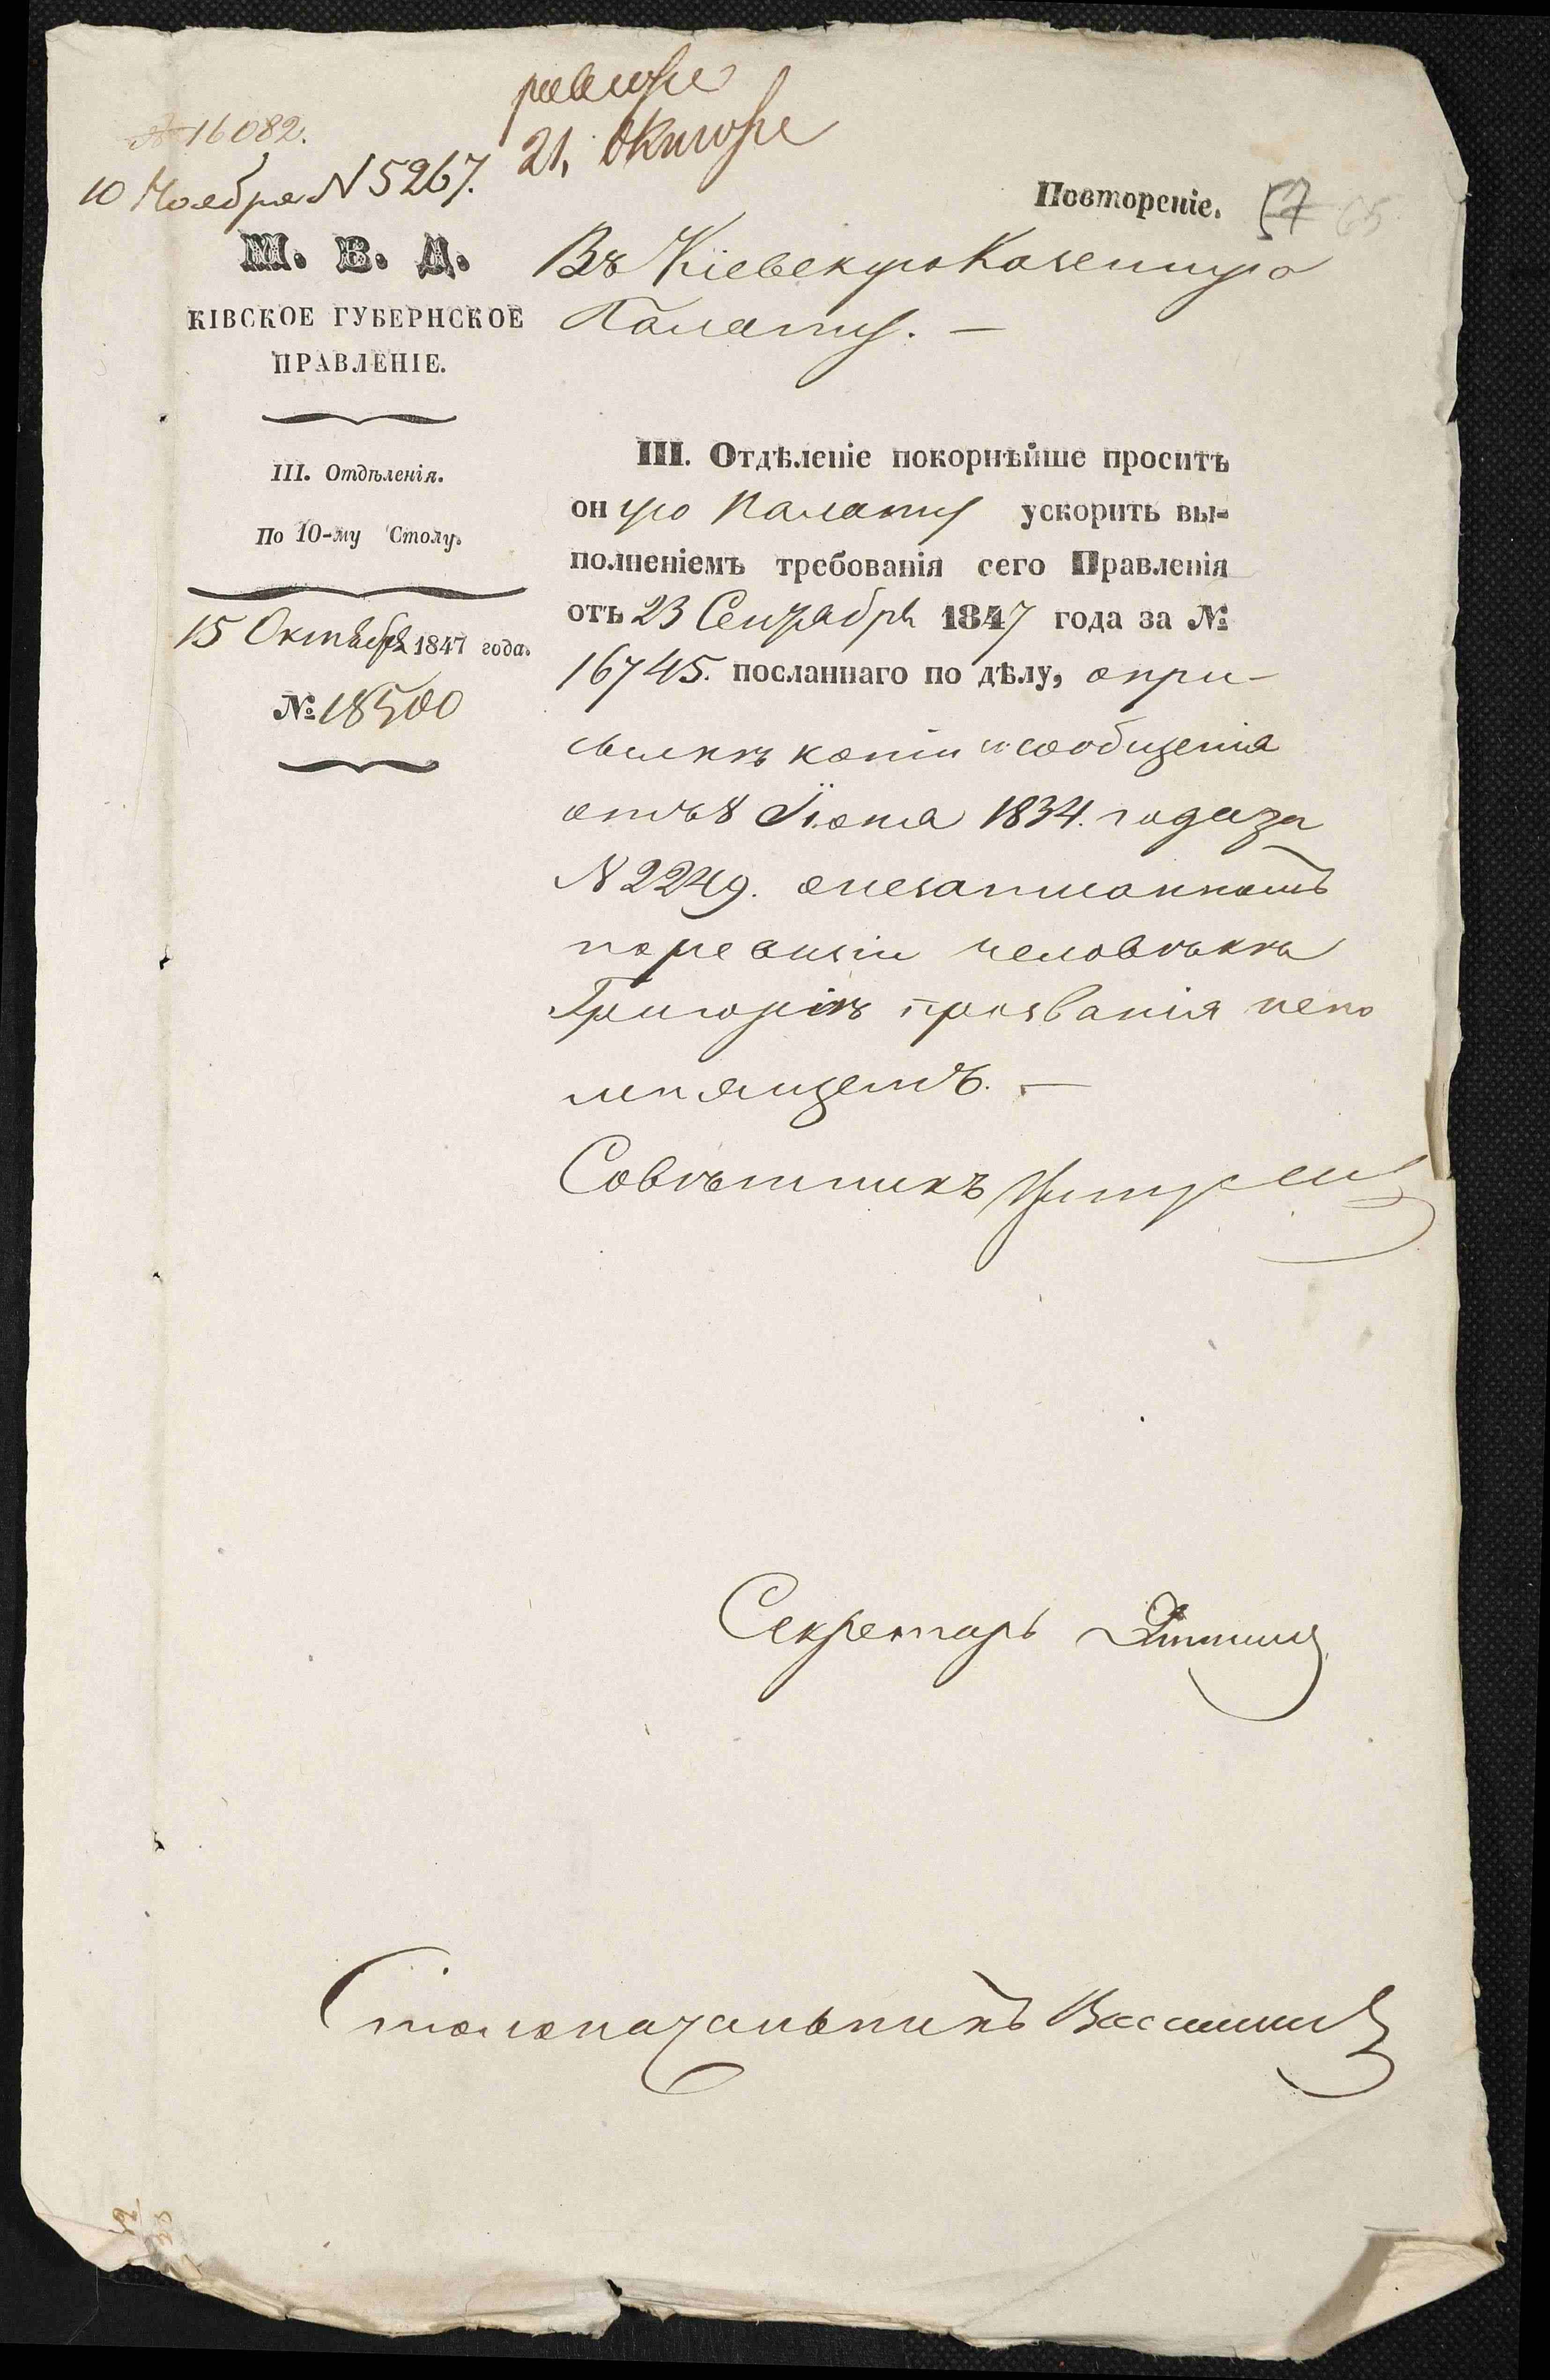 № 16082.
21, Октября
10 Ноября № 5267.
Повтореніе.
57 65
М. В. Д.
КІВСКОЕ ГУБЕРНСКОЕ
ПРАВЛЕНІЕ.
III. Отдѣленія.
По 10-му Столу.
15 Октября 1847 года.
№ 18500
Въ Кіевскую Казенную
Палату. —
III. Отдѣленіе покорнѣйше проситъ
оную Палату ускорить вы-
полненіемъ требованія сего Правленія
отъ 23 Сентября 1847 года за №
16745. посланнаго по дѣлу, о при-
сылкѣ копіи сообщенія
отъ 8 Іюня 1834. года за
N 2249. о незаписанномъ
по ревизіи человѣкѣ
Григоріѣ прозванія непо
мнящемъ. —
Совѣтникъ
Секретарь
Столоначальникъ